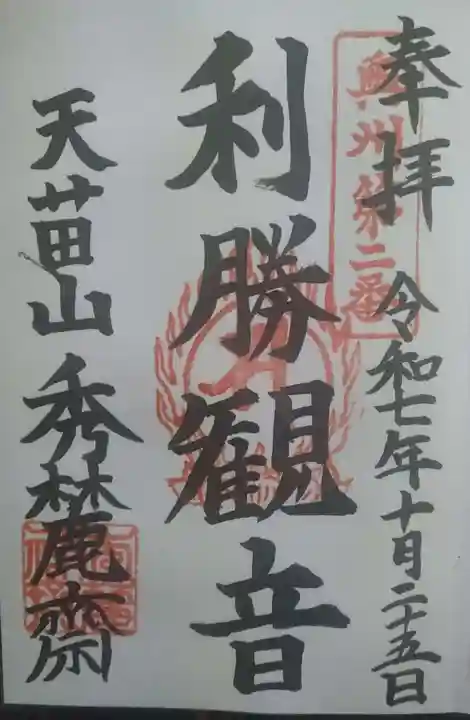 奉拝 令和七年十月二十五日
奥州第二番
利勝観音
天苗山秀麓齋